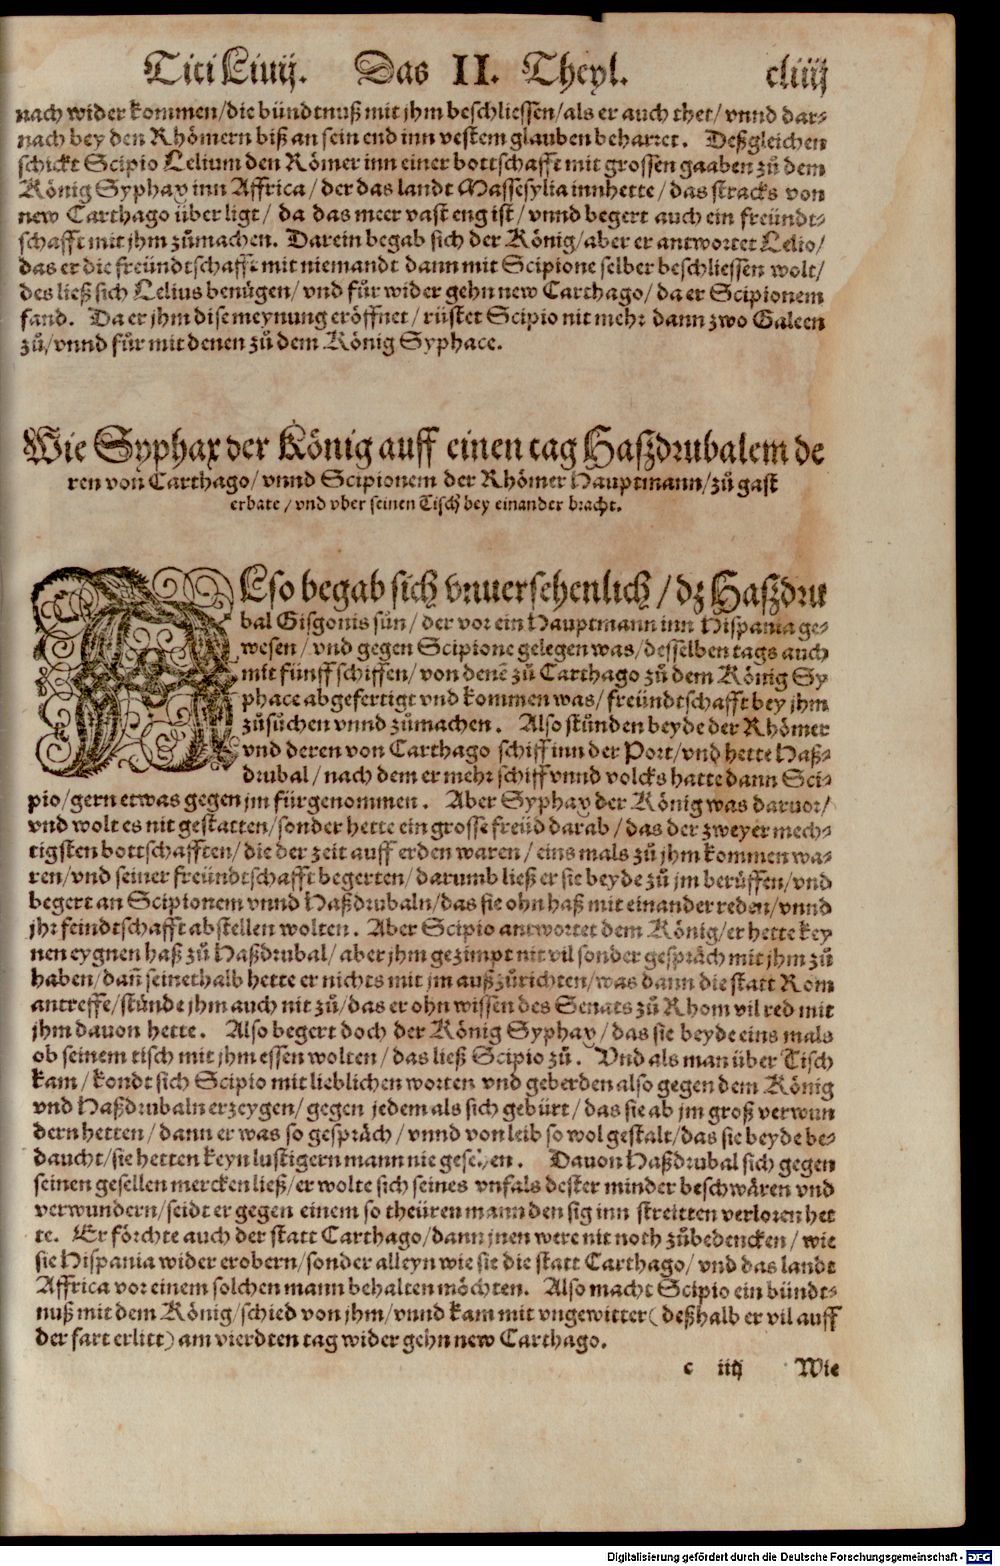 Titi Liuij. Das II. Theyl. cliiij
nach wider kommen/die bündtnuß mit jhm beschliessen/als er auch thet/vnnd dar-
nach bey den Rhömern biß an sein end inn vestem glauben beharret. Deßgleichen
schickt Scipio Lelium den Römer inn einer bottschafft mit grossen gaaben zů dem
König Syphax inn Affrica/der das landt Massesylia innhette/das stracks von
new Carthago über ligt/ da das meer vast eng ist/vnnd begert auch ein freündt-
schafft mit jhm zůmachen. Darein begab sich der König/aber er antwortet Lelio/
das er die freündtschafft mit niemandt dann mit Scipione selber beschliessen wolt/
des ließ sich Lelius benügen/vnd für wider gehn new Carthago/da er Scipionem
fand. Da er jhm dise meynung eröffnet/rüstet Scipio nit mehr dann zwo Galeen
zů/vnnd für mit denen zů dem König Syphace.
Wie Syphax der König auff einen tag Haszdrubalem de
ren von Carthago/vnnd Scipionem der Rhömer Hauptmann/zů gast
erbate/vnd vber seinen Tisch bey einander bracht.
AEso begab sich vnuersehenlich/dz Haszdru
bal Gisgonis sůn/der vor ein Hauptmann inn Hispania ge-
wesen/vnd gegen Scipione gelegen was/desselben tags auch
mit fünff schiffen/von denē zů Carthago zů dem König Sy
phace abgefertigt vnd kommen was/freündtschafft bey jhm
zůsůchen vnnd zůmachen. Also stůnden beyde der Rhömer
vnd deren von Carthago schiff inn der Port/vnd hette Haß-
drubal/nach dem er mehr schiff vnnd volcks hatte dann Sci-
pio/gern etwas gegen jm fürgenommen. Aber Syphax der König was daruor/
vnd wolt es nit gestatten/sonder hette ein grosse freüd darab/das der zweyer mech-
tigsten bottschafften/die der zeit auff erden waren/eins mals zů jhm kommen wa-
ren/vnd seiner freündtschafft begerten/darumb ließ er sie beyde zů jm berůffen/vnd
begert an Scipionem vnnd Haßdrubaln/das sie ohn haß mit einander reden/vnnd
jhr feindtschafft abstellen wolten. Aber Scipio antwortet dem König/er hette key
nen eygnen haß zů Haßdrubal/aber jhm gezimpt nit vil sonder gespräch mit jhm zů
haben/dañ seinethalb hette er nichts mit jm außzůrichten/was dann die statt Rom
antreffe/stůnde jhm auch nit zů/das er ohn wissen des Senats zů Rhom vil red mit
jhm dauon hette. Also begert doch der König Syphax/das sie beyde eins mals
ob seinem tisch mit jhm essen wolten/das ließ Scipio zů. Vnd als man über Tisch
kam/kondt sich Scipio mit lieblichen worten vnd geberden also gegen dem König
vnd Haßdrubaln erzeygen/gegen jedem als sich gebürt/das sie ab jm groß verwun
dern hetten/dann er was so gespräch/vnnd von leib so wol gestalt/das sie beyde be-
daucht/sie hetten keyn lustigern mann nie gesehen. Dauon Haßdrubal sich gegen
seinen gesellen mercken ließ/er wolte sich seines vnfals dester minder beschwären vnd
verwundern/seidt er gegen einem so theüren mann den sig inn streitten verloren het
te. Er förchte auch der statt Carthago/dann jnen were nit noth zůbedencken/wie
sie Hispania wider erobern/sonder alleyn wie sie die statt Carthago/vnd das landt
Affrica vor einem solchen mann behalten möchten. Also macht Scipio ein bündt-
nuß mit dem König/schied von jhm/vnnd kam mit vngewitter (deßhalb er vil auff
der fart erlitt) am vierdten tag wider gehn new Carthago.
c iiij Wie
Digitalisierung gefördert durch die Deutsche Forschungsgemeinschaft - DFG